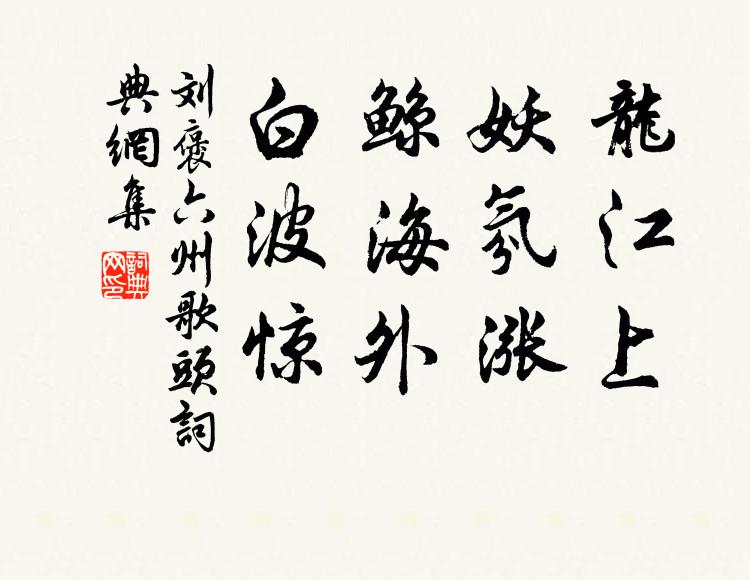 龍江上
妖氛漲
鲸海外
白波惊
刘褒六州歌頭詞
典網集
詞典网印